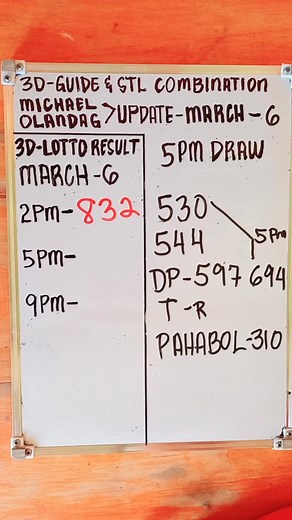 3D-GUIDE & STL COMBINATION
MICHAEL OLANDAG > UPDATE-MARCH-6
3D-LOTTO RESULT
MARCH-6
2PM-832
5PM-
9PM-
5PM DRAW
530
544
5PM
DP-597 694
T-R
PAHABOL-310